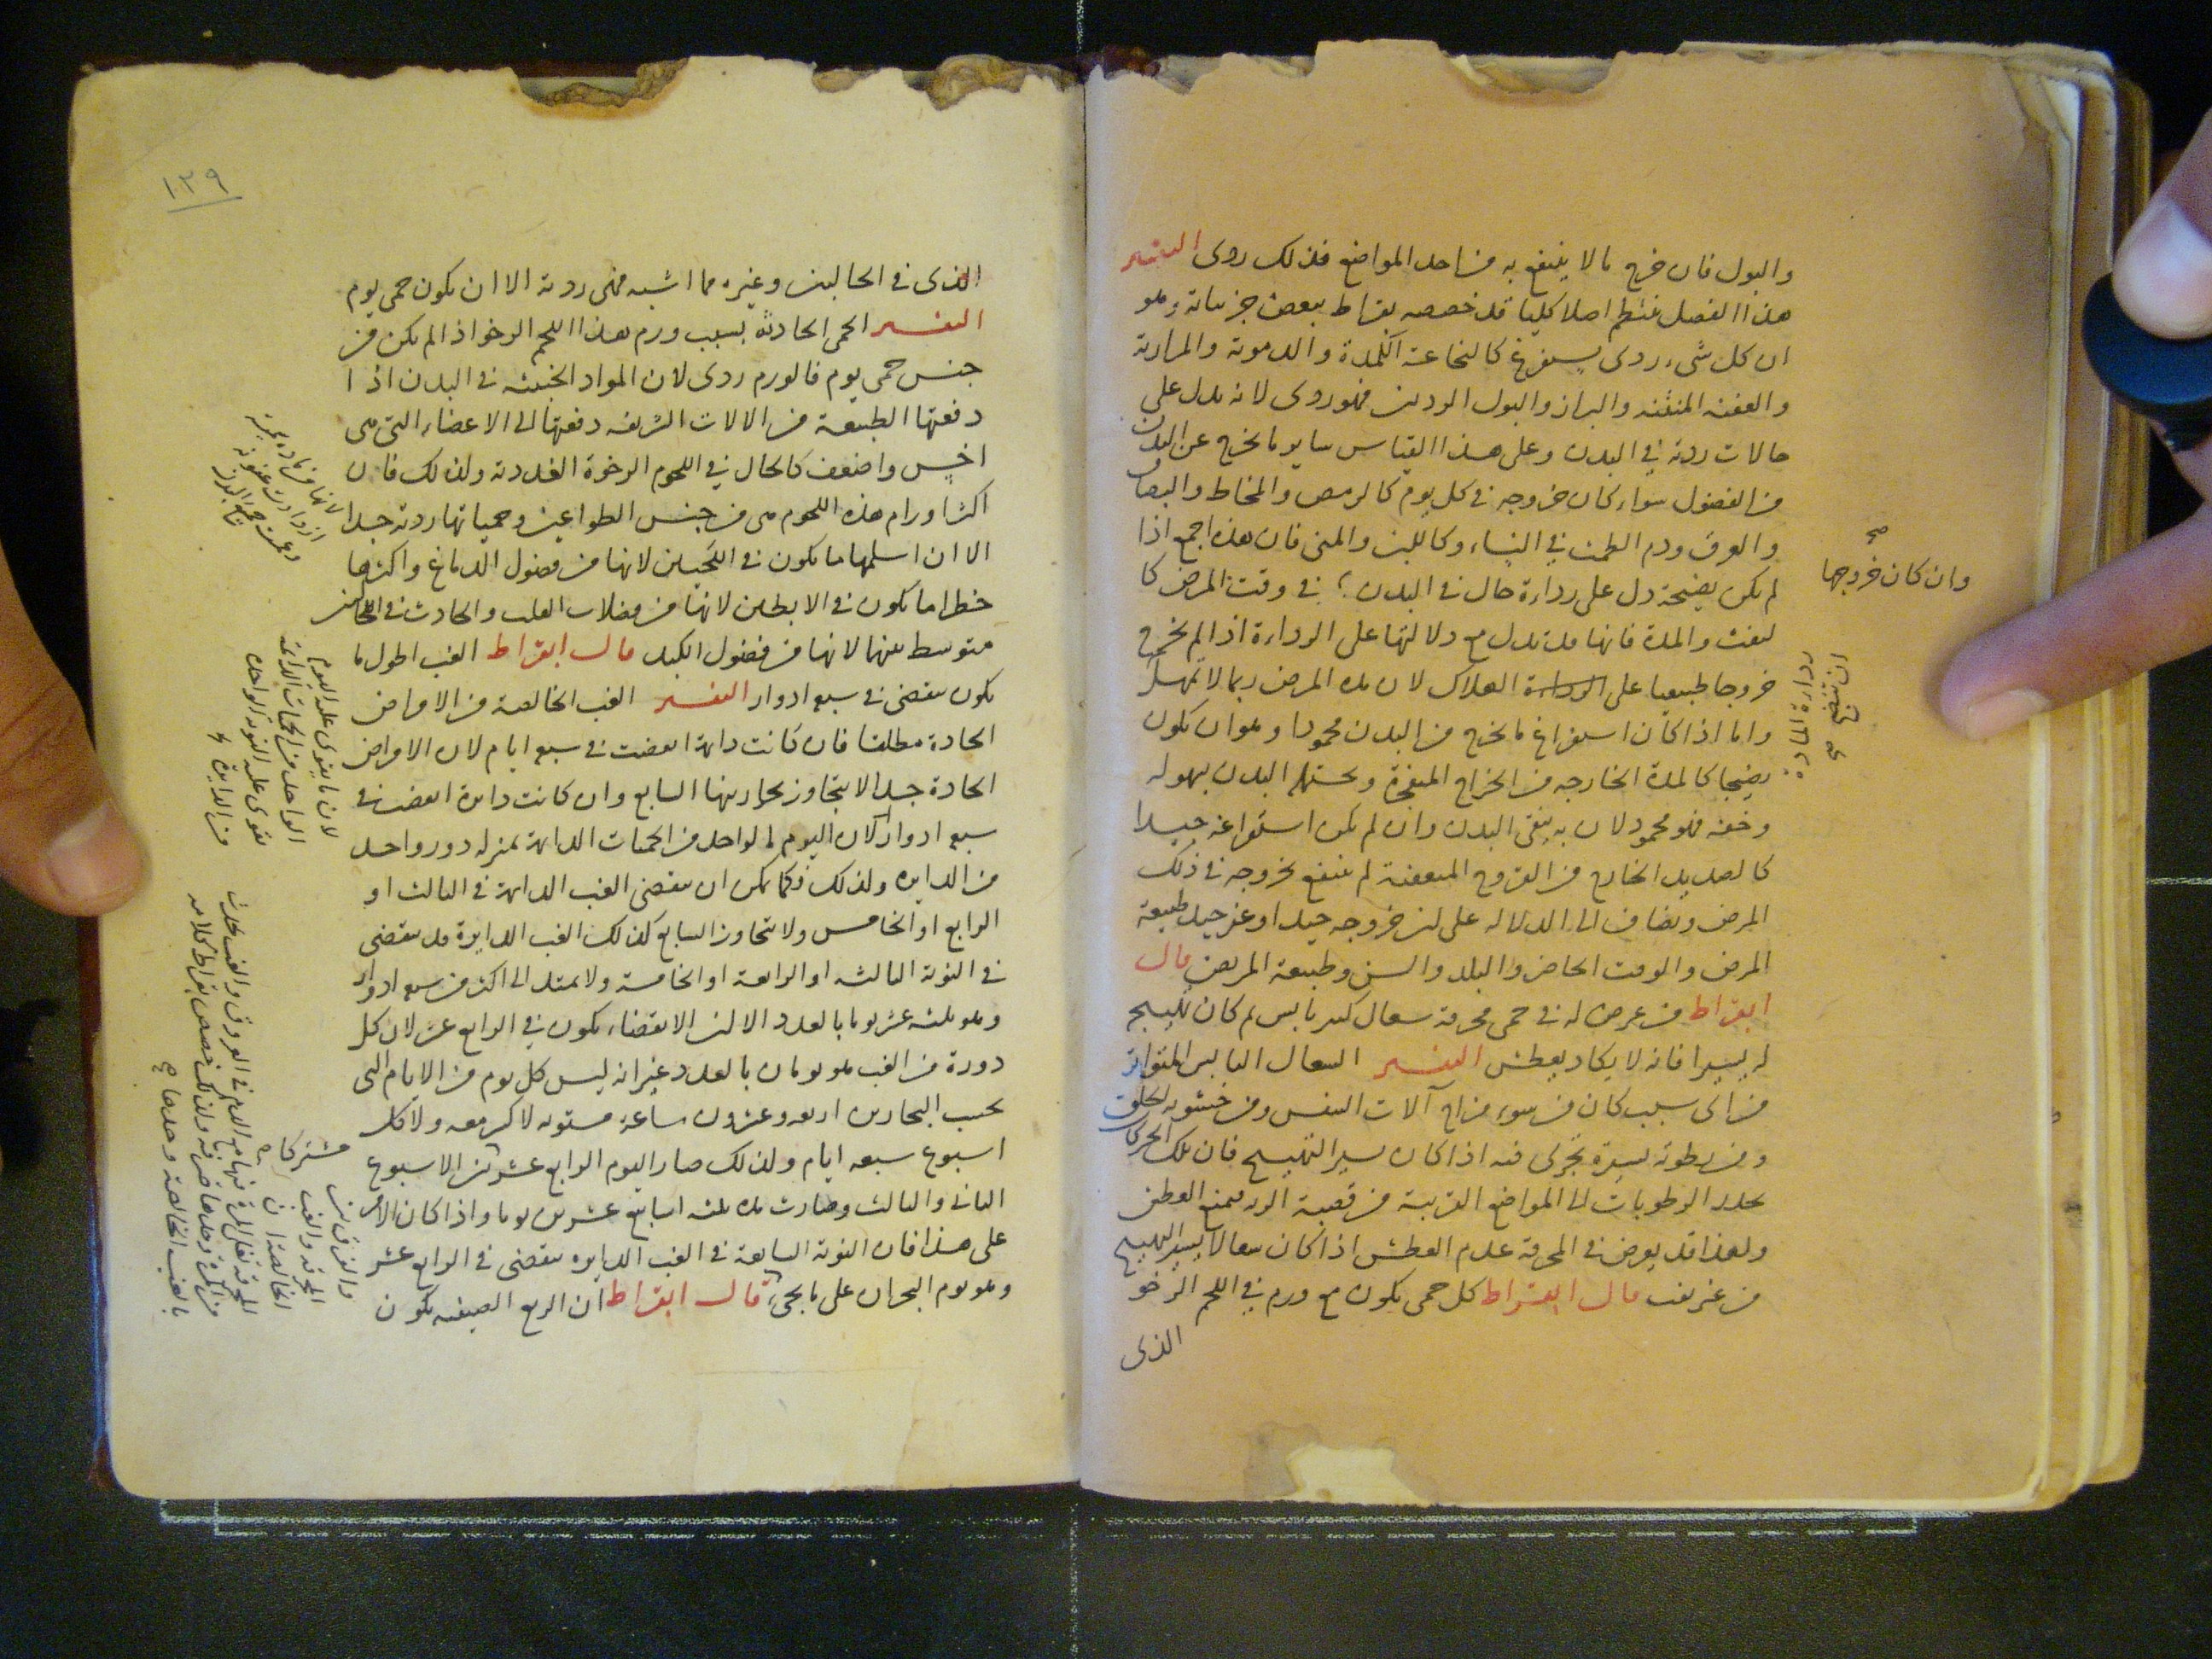 والبول فان خرج ما لا ينتفع به من احد المواضع فذلك ردى التفسير
هذا الفصل ينتظم اصلا كليا قد خصصه بقراط ببعض جزئياته وهو
ان كل شىء ردى يستفرغ كالنخاعة الكمدة والدموية والمرارية
والعفنه المنتنه والبراز والبول الرديين فهو ردى لانه يدل على
حالات ردية في البدن وعلى هذا القياس ساير ما يخرج عن البدن
من الفضول سواء كان خروجه في كل يوم كالرمص والمخاط والبصاق
والعرق ودم الطمث في النساء وكاللبن والمنى فان هذه اجمع اذا
لم يكن نضيجة دل على رداءة حال في البدن في وقت المرض كا
لنفث والمدة فانها قد تدل مع دلالتها على الرداءة اذا لم يخرج
خروجا طبيعيا على الهلاك لان مده المرض ربما لا تمهل
واما اذا كان استفراغ ما يخرج من البدن محمودا وهو ان يكون
نضيجا كالمدة الخارجه من الخراج المنفجرة ويحتمله البدن بسهوله
وخفه فهو محمود لان به ينقى البدن وان لم يكن استفراغه جيدا
كالصديد الخارج من القروح المتعفنة لم ينتفع بخروجه في ذلك
المرض ويضاف الى الدلاله على ان خروجه جيد او غير جيد طبيعة
المرض والوقت الحاضر والبلد والسن وطبيعة المريض قال
ابقراط من عرض له في حمى محرقة سعال كثير يابس ثم كان تهييجه
له يسيرا فانه لا يكاد يعطش التفسير السعال اليابس المتواتر
من اى سبب كان من سوء مزاج آلات التنفس ومن خشونه الحلق
ومن رطوبة يسيرة تجرى فيه اذا كان يسير التهييج فان تلك الحركات
تجذب الرطوبات الى المواضع القريبة من قصبة الريه فيمنع العطش
ولهذا قد يعرض في المحرقة عدم العطش اذا كان سعالا يسير التهييج
من غير نفث قال ابقراط كل حمى يكون مع ورم في اللحم الرخو
الذى
وان كان خروجها
صح
١٣٩
الذى في الحالبين وغيره مما اشبه فهى ردية الا ان يكون حمى يوم
التفسير الحمى الحادثة بسبب ورم هذا اللحم الرخو اذا لم يكن من
جنس حمى يوم فالورم ردى لان المواد الخبيثه في البدن اذا
دفعتها الطبيعة من الالات الشريفه دفعتها الى الاعضاء التى هى
اخس واضعف كالحال في اللحوم الرخوة الغددية ولذلك فان
اكثر اورام هذه اللحوم هى من جنس الطواعين وحمياتها ردية جدا
الا ان اسلمها ما يكون في اللحيين لانها من فضول الدماغ واكثرها
خطرا ما يكون في الابطين لانها من فضلات القلب والحادث في الحالبين
متوسط بينهما لانها من فضول الكبد قال ابقراط الغب اطول ما
يكون تنقضى في سبع ادوار التفسير الغب الخالصة من الامراض
الحادة مطلقا فان كانت دايمة انقضت في سبع ايام لان الامراض
الحادة جدا لا يتجاوز بحارينها السابع وان كانت دايرة انقضت في
سبع ادوار لان اليوم الواحد من الحميات الدايمة بمنزله دور واحد
من الدايره ولذلك فكما يمكن ان تنقضى الغب الدايمة في الثالث او
الرابع او الخامس ولا تتجاوز السابع كذلك الغب الدايرة قد تنقضى
في النوبة الثالثه او الرابعة او الخامسة ولا يمتد الى اكثر من سبع ادوار
وهو ثلثه عشر يوما بالعدد الا ان الانقضاء يكون في الرابع عشر لان كل
دورة من الغب هو يومان بالعدد غير انه ليس كل يوم من الايام التى
بحسب البحارين اربعه وعشرون ساعة مستويه لا كسر معه ولا كل
اسبوع سبعه ايام ولذلك صار اليوم الرابع عشر من الاسبوع
الثانى والثالث وصارت مده ثلثه اسابيع عشرين يوما واذا كان الامر
على هذا فان النوبة السابعة في الغب الدايره تنقضى في الرابع عشر
وهو يوم البحران على ما يجىء قال ابقراط ان الربع الصيفيه يكون
لان ما يقوى عليه اليوم
الواحد من الحميات الدايمة
تقوى عليه النوبة الواحدة
من الدايرة
مشتركا
بالغب الخالصة وحدها